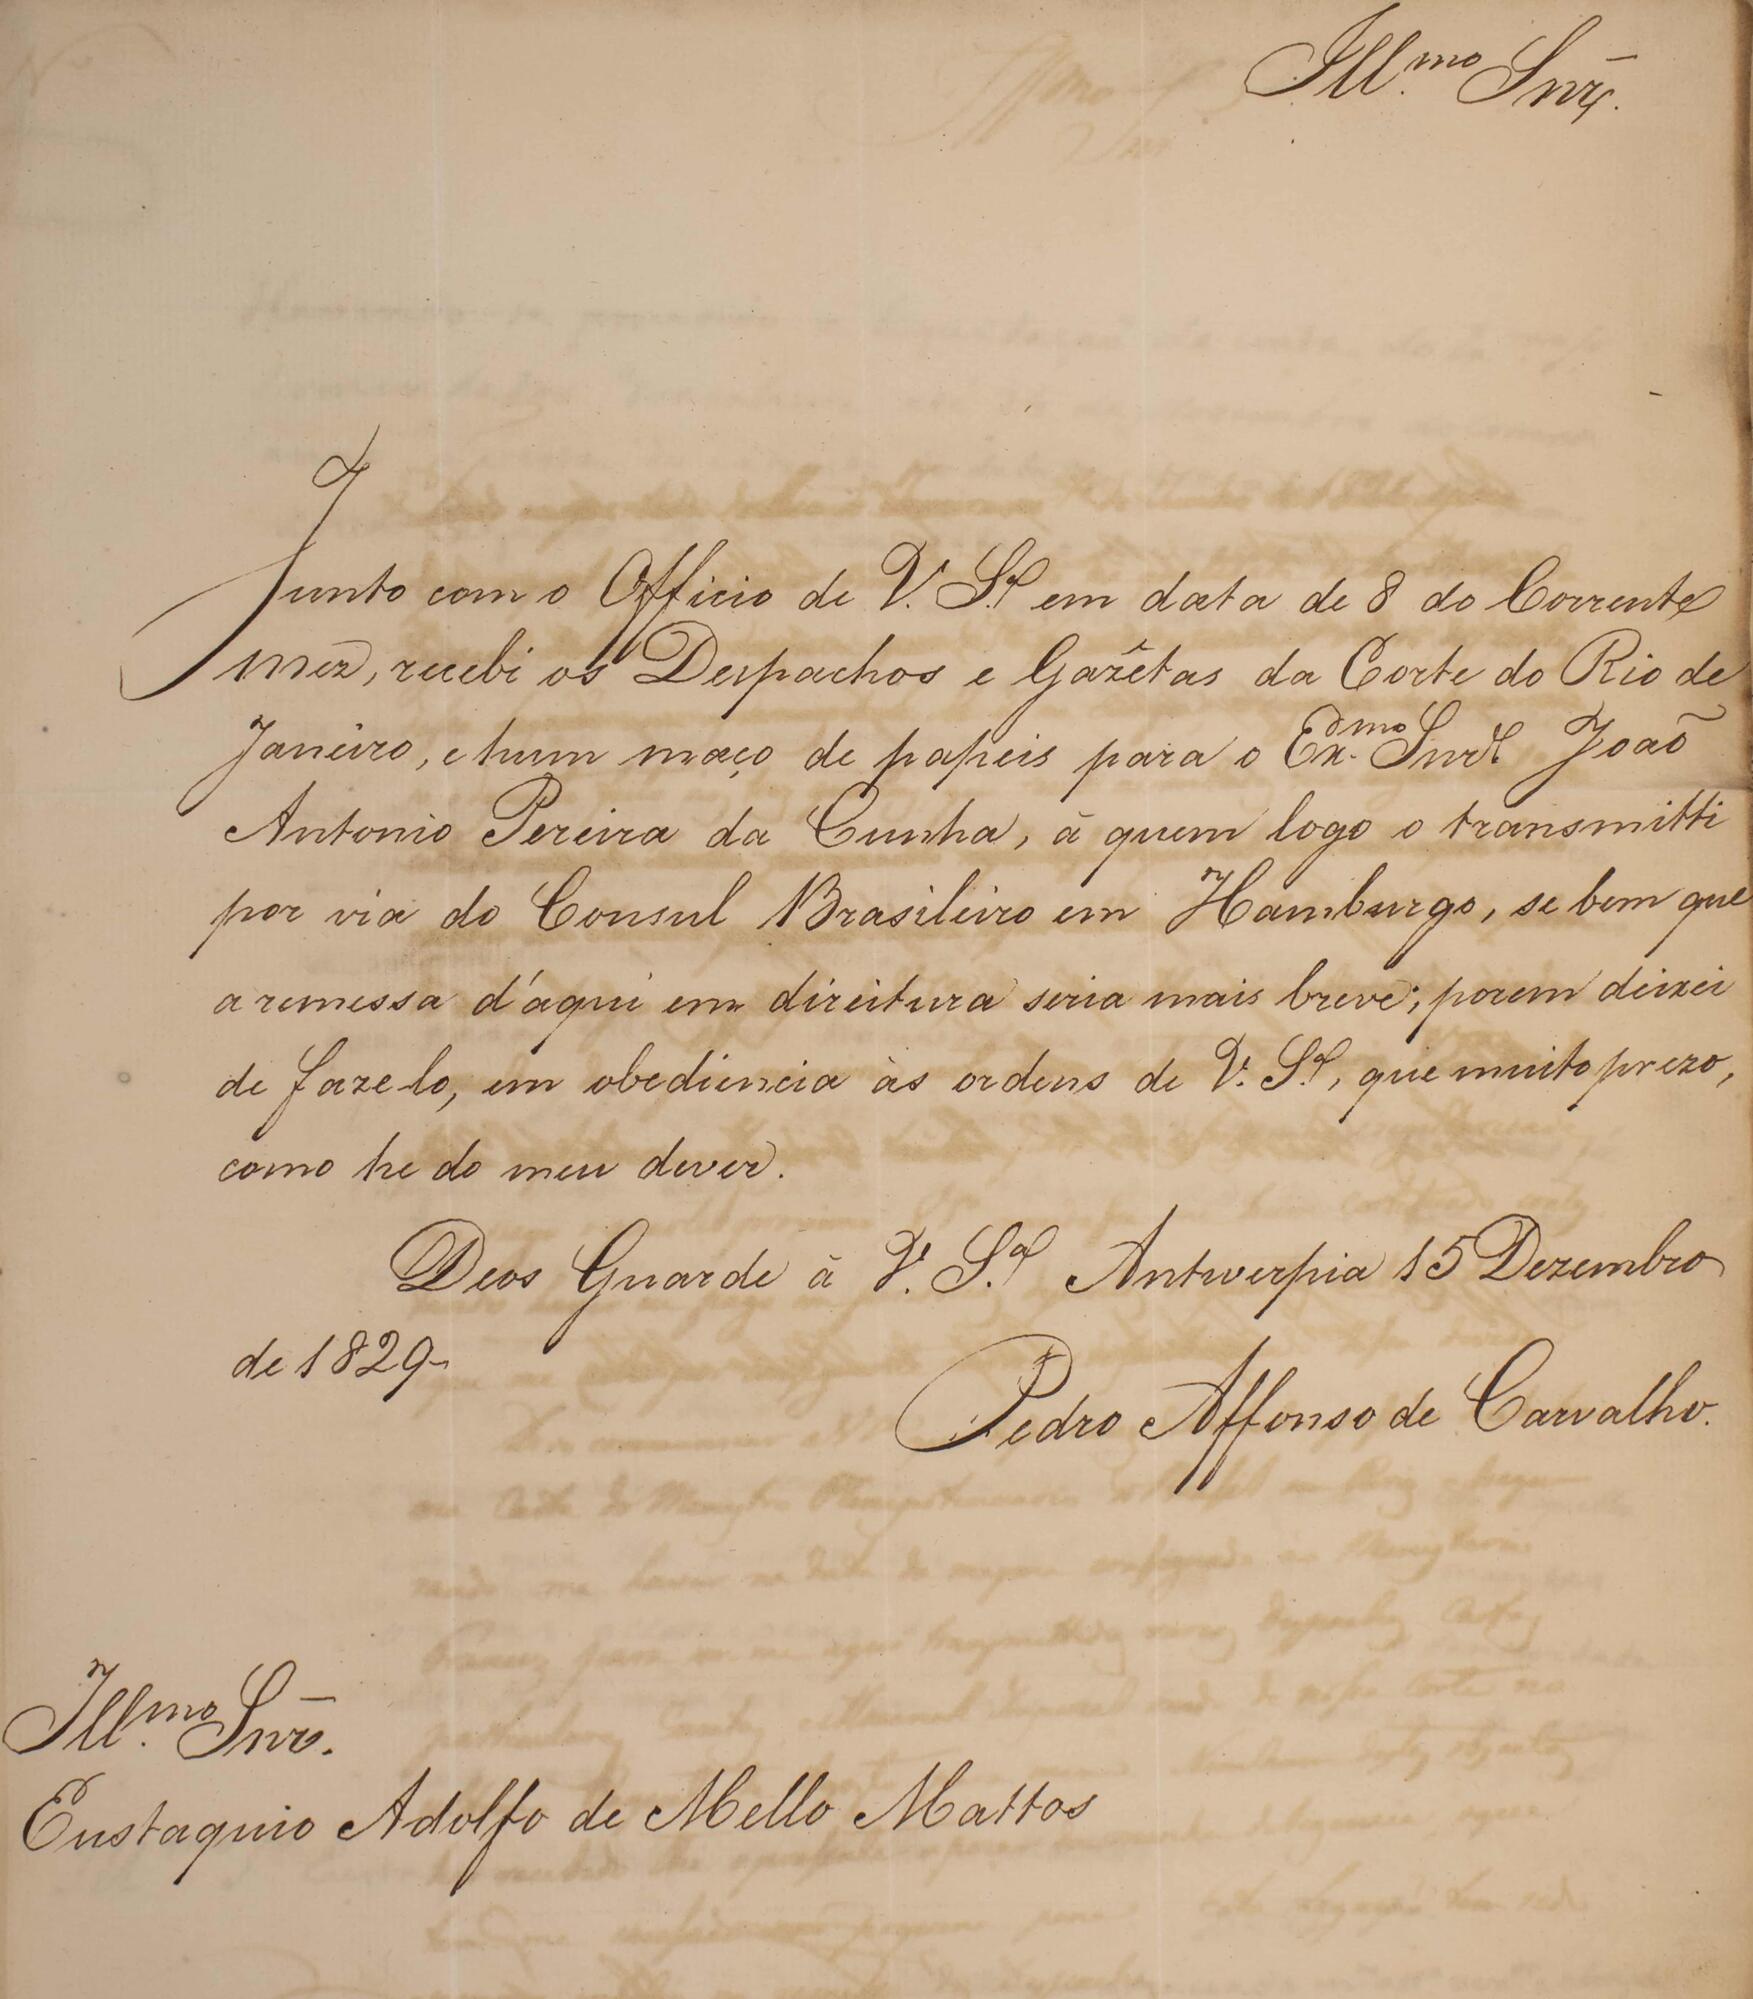 Ill.mo Snr.
Junto com o Officio de V. S.ª em data de 8 do Corrente
mez, recebi os Despachos e Gazêtas da Corte do Rio de
Janeiro, e hum maço de papeis para o Ex.mo Snr. Joaõ
Antonio Pereira da Cunha, à quem logo o transmitti
por via do Consul Brasileiro em Hamburgo, se bem que
a remessa d'aqui em direitura seria mais breve; porem deixei
de fazelo, em obediencia às ordens de V. S.ª, que muito prezo,
como he do meu dever.
Deos Guarde à V. S.ª Antwerpia 15 Dezembro
de 1829
Pedro Affonso de Carvalho.
Ill.mo Snr.
Eustaquio Adolfo de Mello Mattos